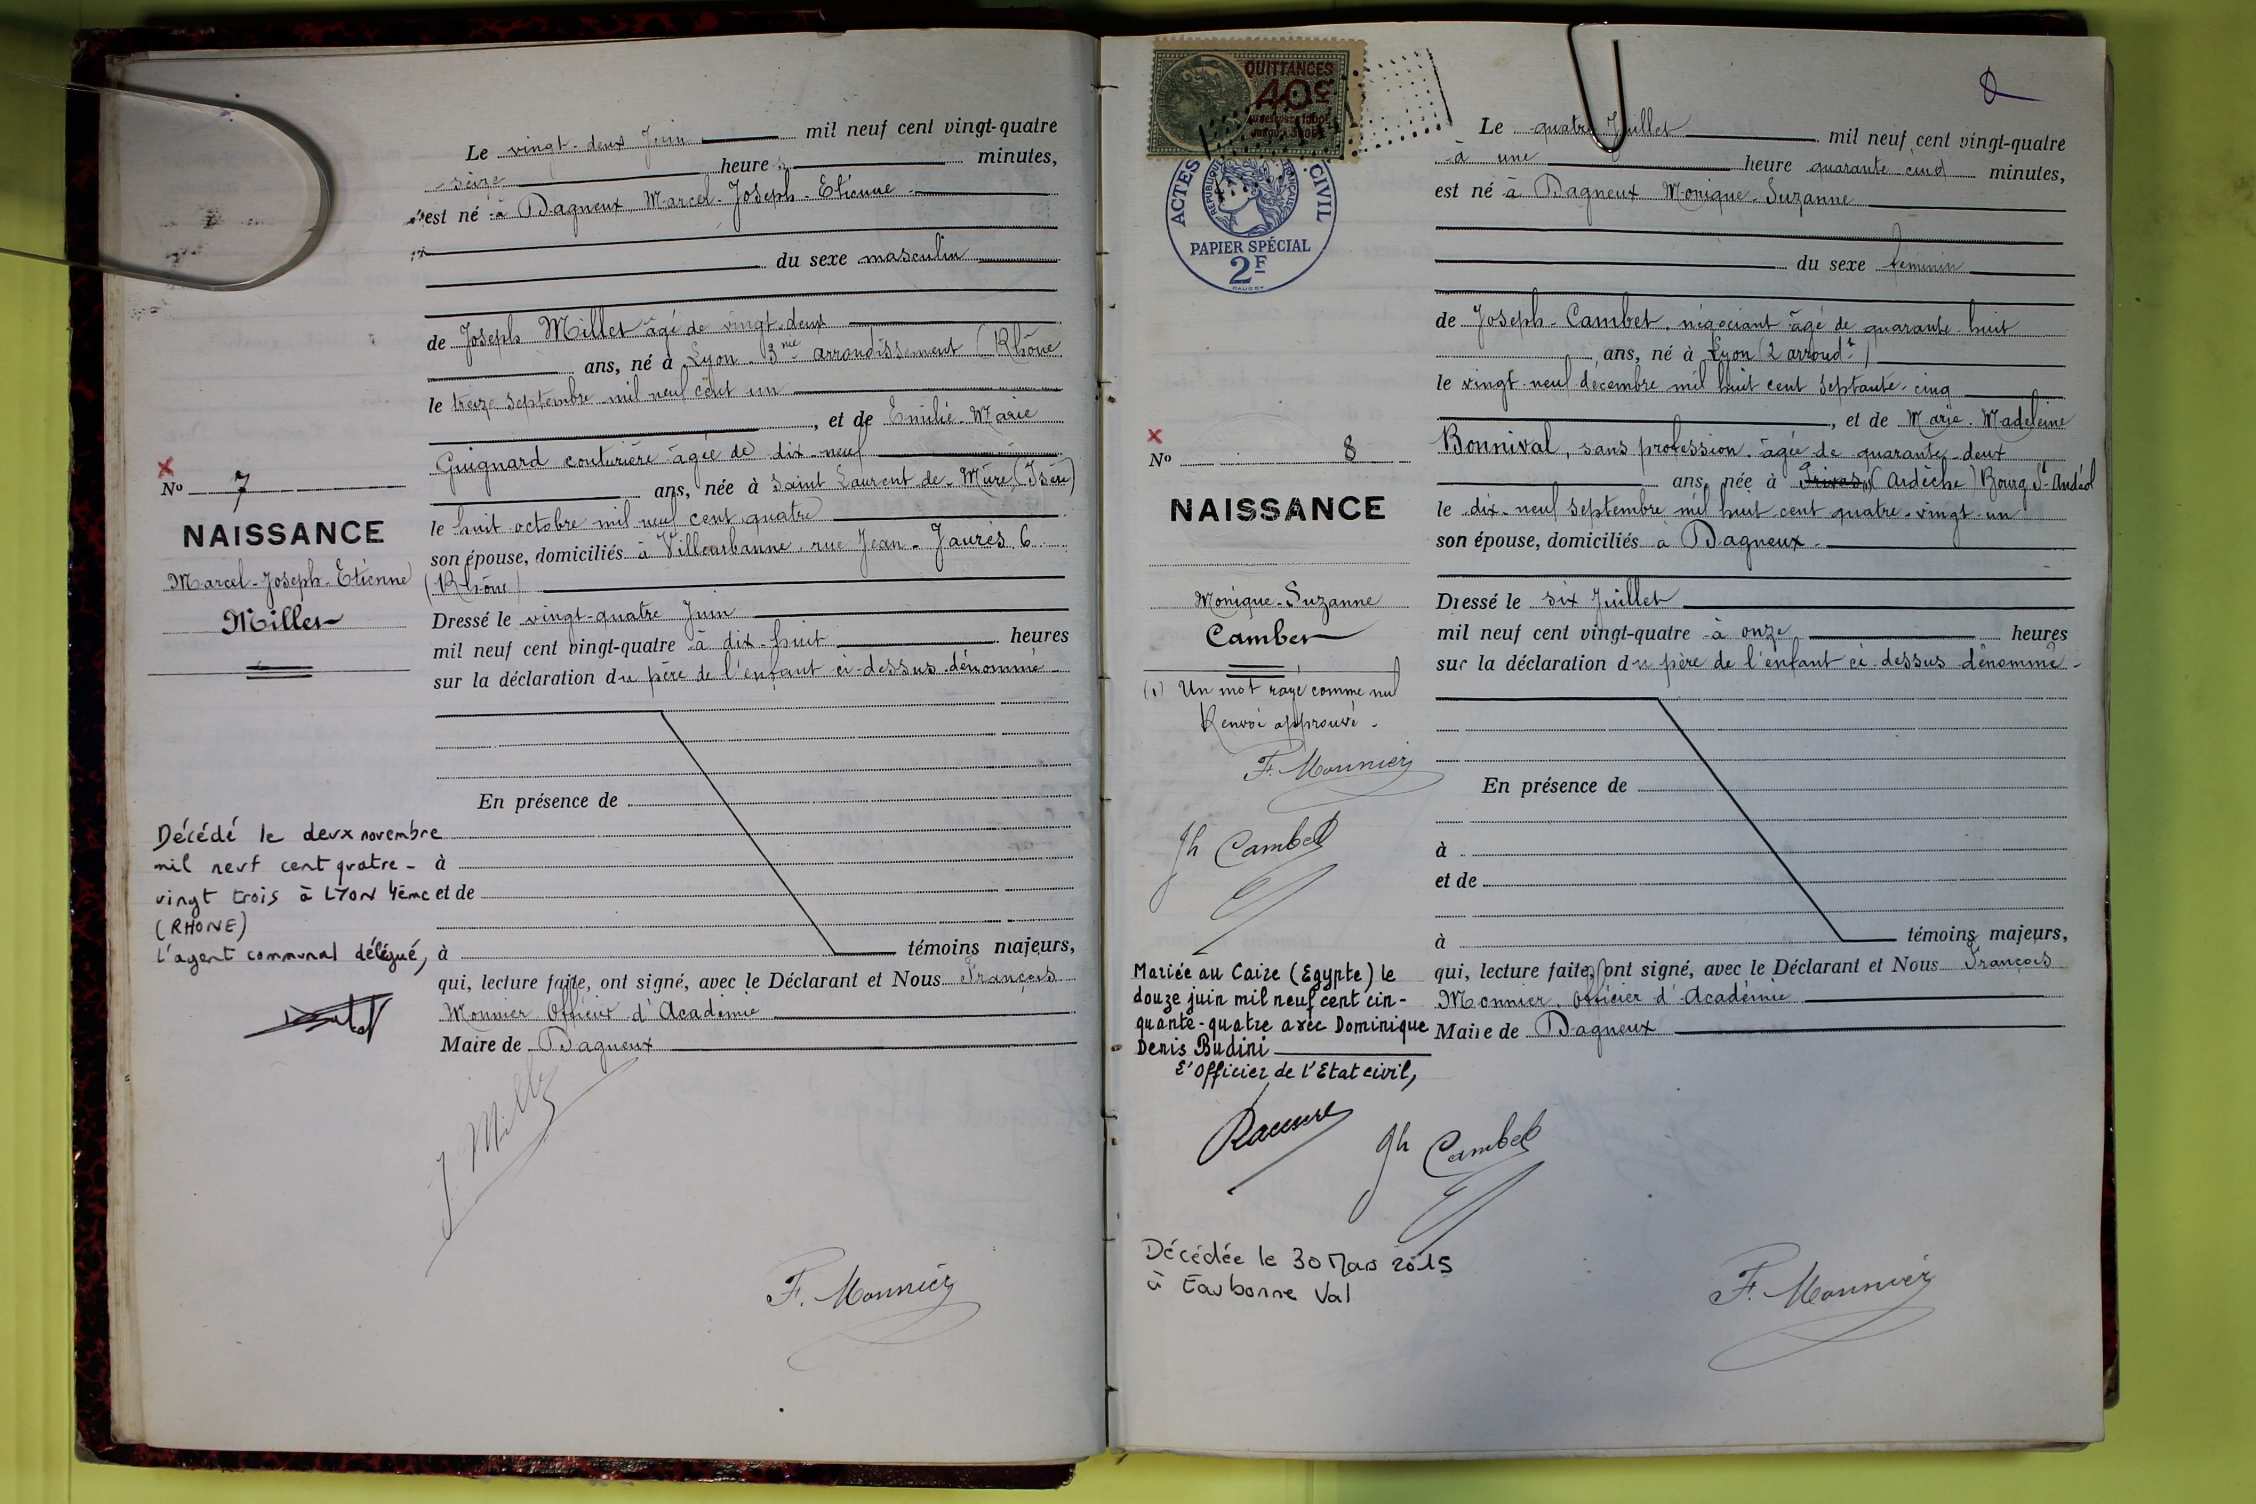 Le vingt-deux Juin mil neuf cent vingt-quatre
seize heures minutes,
est né à Dagneux Marcel-Joseph-Etienne
du sexe masculin
de Joseph Millet âgé de vingt-deux
ans, né à Lyon 3me arrondissement (Rhône
le treize septembre mil neuf cent un
, et de Emilie-Marie
Guignard couturière âgée de dix-neuf
ans, née à Saint Laurent de-Mûre (Isère)
le huit octobre mil neuf cent quatre
son épouse, domiciliés à Villeurbanne rue Jean-Jaurès 6
(Rhône)
Dressé le vingt-quatre Juin
mil neuf cent vingt-quatre à dix-huit heures
sur la déclaration du père de l'enfant ci-dessus dénommé
En présence de
à
et de
à témoins majeurs,
qui, lecture faite, ont signé, avec le Déclarant et Nous François
Monnier Officier d'Académie
Maire de Dagneux
J. Millet
F. Monnier
No 7
NAISSANCE
Marcel-Joseph-Etienne
Millet
Décédé le deux novembre
mil neuf cent quatre-
vingt trois à LYON 4ème
(RHONE)
L'agent communal délégué,
QUITTANCES
40c
ACTES CIVIL
REPUBLIQUE FRANÇAISE
PAPIER SPÉCIAL
2F
Le quatre Juillet mil neuf cent vingt-quatre
à une heure quarante cinq minutes,
est né à Dagneux Monique-Suzanne
du sexe féminin
de Joseph-Cambet, négociant âgé de quarante-huit
ans, né à Lyon (2 arrondt)
le vingt-neuf décembre mil huit cent septante-cinq
, et de Marie-Madeleine
Bonnival, sans profession, âgée de quarante-deux
ans, née à Privas (1) (Ardèche) Bourg St-Andéol
le dix-neuf septembre mil huit cent quatre-vingt-un
son épouse, domiciliés à Dagneux
Dressé le six Juillet
mil neuf cent vingt-quatre à onze heures
sur la déclaration du père de l'enfant ci-dessus dénommé
En présence de
à
et de
à témoins majeurs,
qui, lecture faite, ont signé, avec le Déclarant et Nous François
Monnier, Officier d'Académie
Maire de Dagneux
No 8
NAISSANCE
Monique-Suzanne
Cambet
(1) Un mot rayé comme nul
Renvoi approuvé
F. Monnier
Jh Cambet
Mariée au Caire (Egypte) le
douze juin mil neuf cent cin-
quante-quatre avec Dominique
Denis Budini
L'officier de l'Etat civil,
Jh Cambet
Décédée le 30 Mars 2015
à Eaubonne Val
F. Monnier